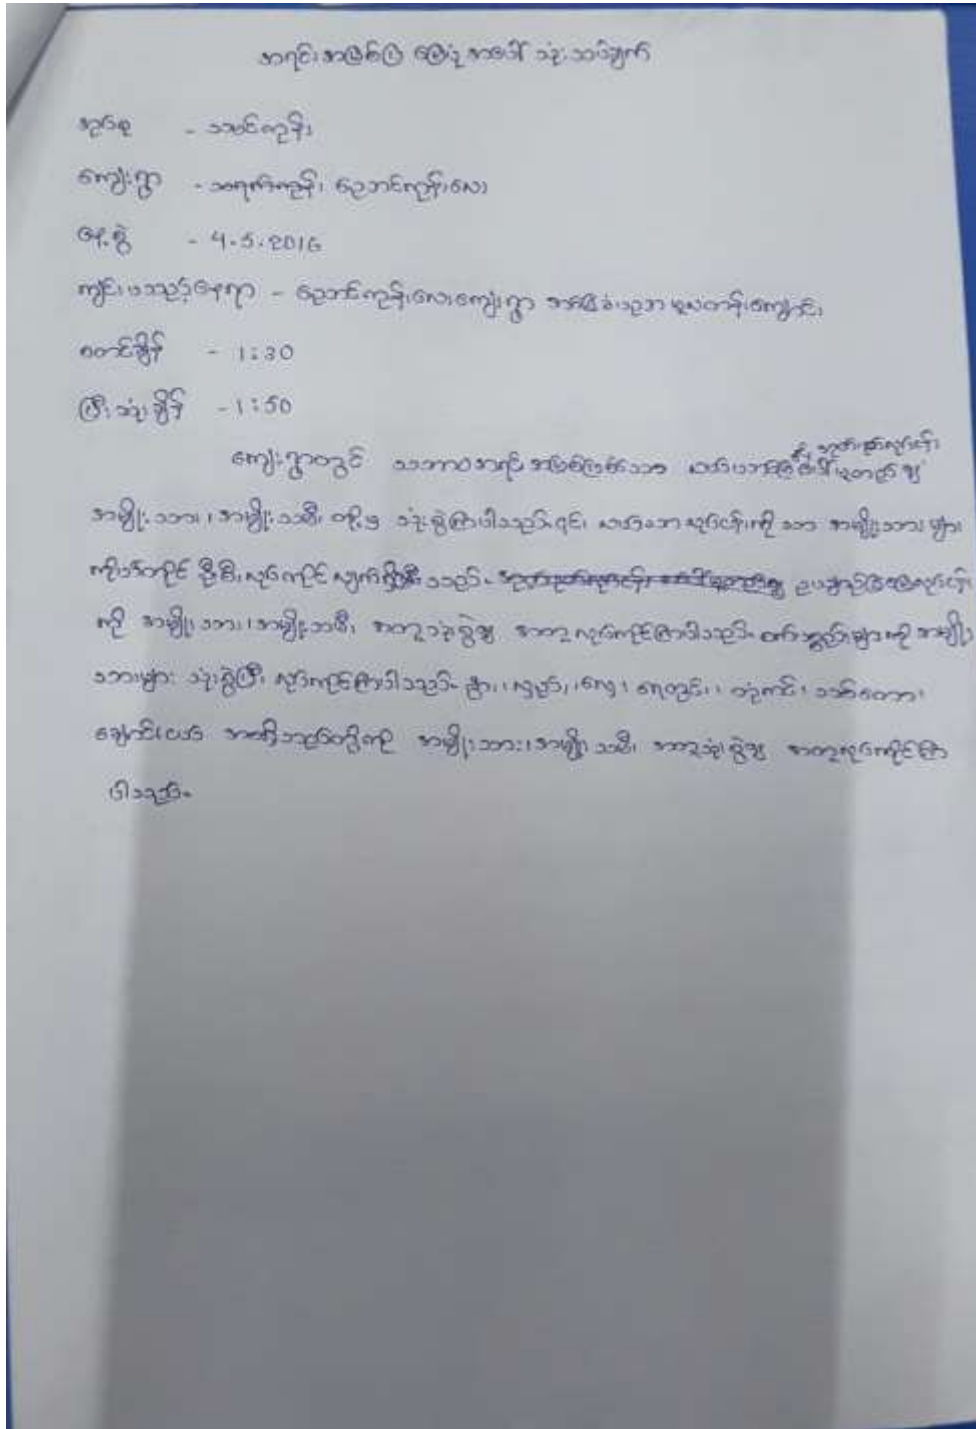 အရင်းအမြစ်ပြ မြေပုံအပေါ် သုံးသပ်ချက်
အုပ်စု - သမင်ကုန်း
ကျေးရွာ - သရက်ကုန်း ညောင်ကုန်းလေး
နေ့စွဲ - 4.5.2016
ကျင်းပသည့်နေရာ - ညောင်ကုန်းလေးကျေးရွာ အခြေခံပညာ မူလတန်းကျောင်း
စတင်ချိန် - 1:30
ပြီးဆုံးချိန် - 1:50
ကျေးရွာတွင် သဘာဝအရင်းအမြစ်ဖြစ်သော
အမျိုးသား၊ အမျိုးသမီး တို့မှ သုံးစွဲကြပါသည်။ ၎င်း လုပ်ငန်းကို သာ အမျိုးသားများ
ကိုယ်တိုင် ဦးစီးလုပ်ကိုင်လျက်ရှိသည်။
ကို အမျိုးသား၊ အမျိုးသမီး အတူသုံးစွဲ၍ အတူလုပ်ကိုင်ကြပါသည်။ များကို အမျိုး
သားများ သုံးစွဲပြီး လုပ်ကိုင်ကြပါသည်။ နွား၊ လှည်း၊ လှေ၊ ရေတွင်း၊ တုံကင်၊ သစ်တော၊
ချောင်း အမျိုးသား၊ အမျိုးသမီး အတူသုံးစွဲ၍ အတူလုပ်ကိုင်ကြ
ပါသည်။